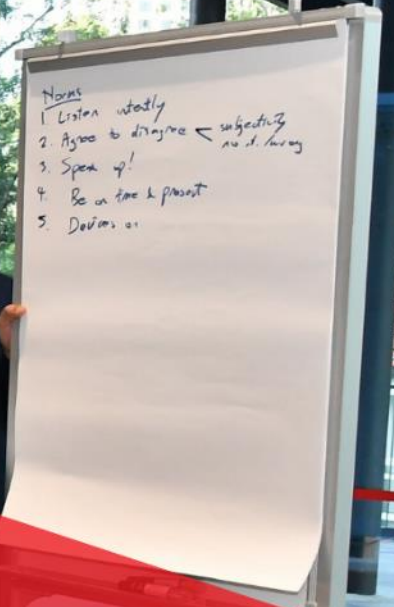 Norms
1. Listen intently
2. Agree to disagree < subjectivity
no rt./wrong
3. Speak up!
4. Be on time & present
5. Devices on